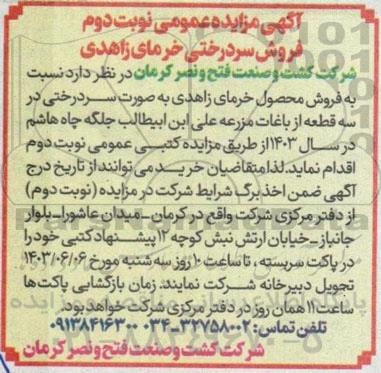 آگهی مزایده عمومی نوبت دوم
فروش سردرختی خرمای زاهدی
شرکت کشت و صنعت فتح و نصر کرمان در نظر دارد نسبت
به فروش محصول خرمای زاهدی به صورت سردرختی در
سه قطعه از باغات مزرعه علی ابن ابیطالب جلگه چاه هاشم
در سال ۱۴۰۳ از طریق مزایده کتبی عمومی نوبت دوم
اقدام نماید. لذا متقاضیان خرید می توانند از تاریخ درج
آگهی ضمن اخذ برگ شرایط شرکت در مزایده (نوبت دوم)
از دفتر مرکزی شرکت واقع در کرمان_میدان عاشورا_بلوار
جانباز_خیابان ارتش نبش کوچه ۱۲ پیشنهاد کتبی خود را
در پاکت سربسته ، تا ساعت ۱۰ روز سه شنبه مورخ ۱۴۰۳/۰۶/۰۶
تحویل دبیرخانه شرکت نمایند. زمان بازگشایی پاکت ها
ساعت ۱۱ همان روز در دفتر مرکزی شرکت خواهد بود.
تلفن تماس: ۳۲۷۵۸۰۰۲-۰۳۴ ۰۹۱۳۸۴۱۶۳۰۰
شرکت کشت و صنعت فتح و نصر کرمان